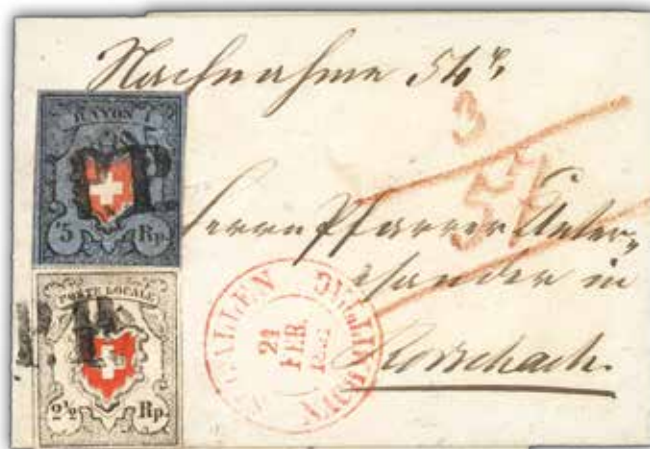 Nachnahme 54 Xr
RAYON I
P.P.
5 Rp.
3
57
Herrn Pfarrer Unter-
sander in
Rorschach.
POSTE LOCALE
P.P.
2½ Rp.
ST. GALLEN
21
FEB.
NACHMITTAG